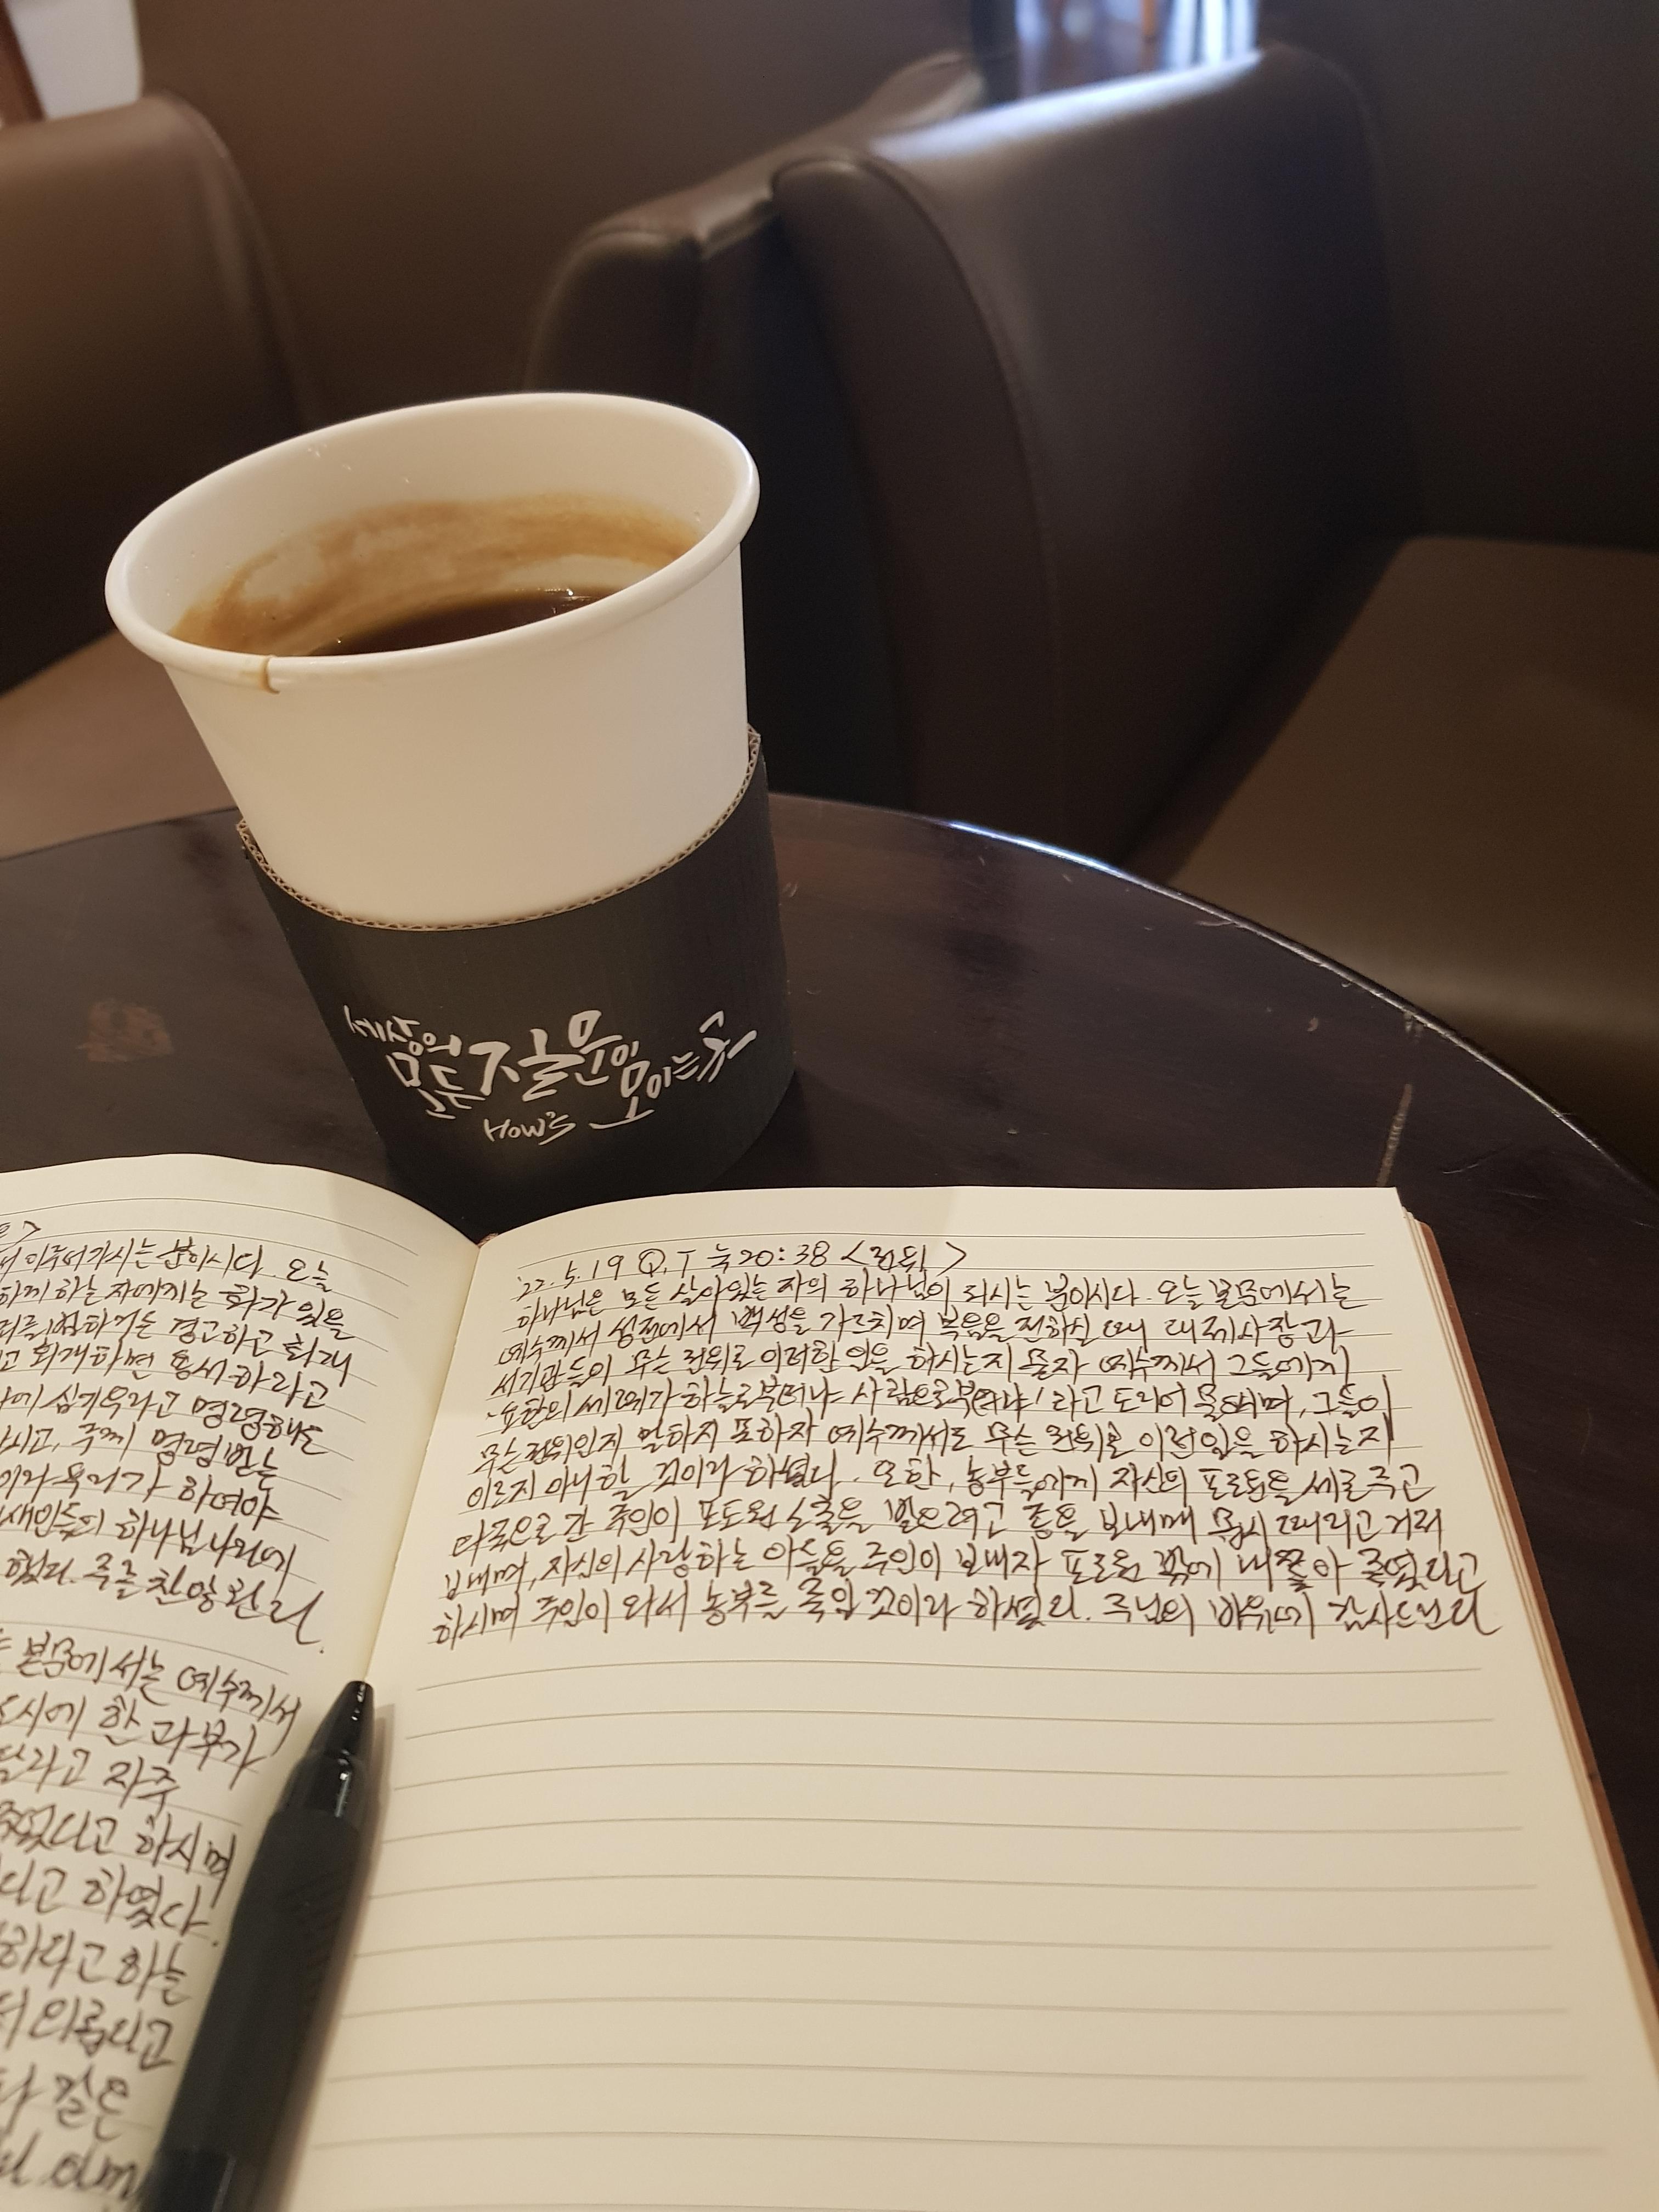 세상의
모든 질문이
모이는 곳
How's
이루어가시는 분이시다. 오늘
하게 하는 자에게는 화가 있을
경고하고 회개
고 회개하면 용서하라고
심기우라고 명령해도
시고, 주께 명령받은
하여야
하나님 나라에
했다. 주를 찬양한다.
본문에서는 예수께서
도시에 한 과부가
달라고 자주
하시며
다고 하였다.
하라고 하는
의롭다고
같은
'22. 5. 19 Q.T 눅20:38 <권위>
하나님은 모든 살아있는 자의 하나님이 되시는 분이시다. 오늘 본문에서는
예수께서 성전에서 백성을 가르치며 복음을 전하실 때 대제사장과
서기관들이 무슨 권위로 이러한 일을 하시는지 묻자 예수께서 그들에게
요한의 세례가 하늘로부터냐 사람으로부터냐! 라고 도리어 물으며, 그들이
무슨 권위인지 말하지 못하자 예수께서도 무슨 권위로 이런 일을 하시는지
이르지 아니할 것이라 하셨다. 또한, 농부들에게 자신의 포도원을 세로 주고
타국으로 간 주인이 포도원 소출을 받으려고 종을 보내매 몹시 때리고 거저
보내며, 자신의 사랑하는 아들을 주인이 보내자 포도원 밖에 내쫓아 죽였다고
하시며 주인이 와서 농부를 죽일 것이라 하셨다. 주님의 권위에 감사드린다